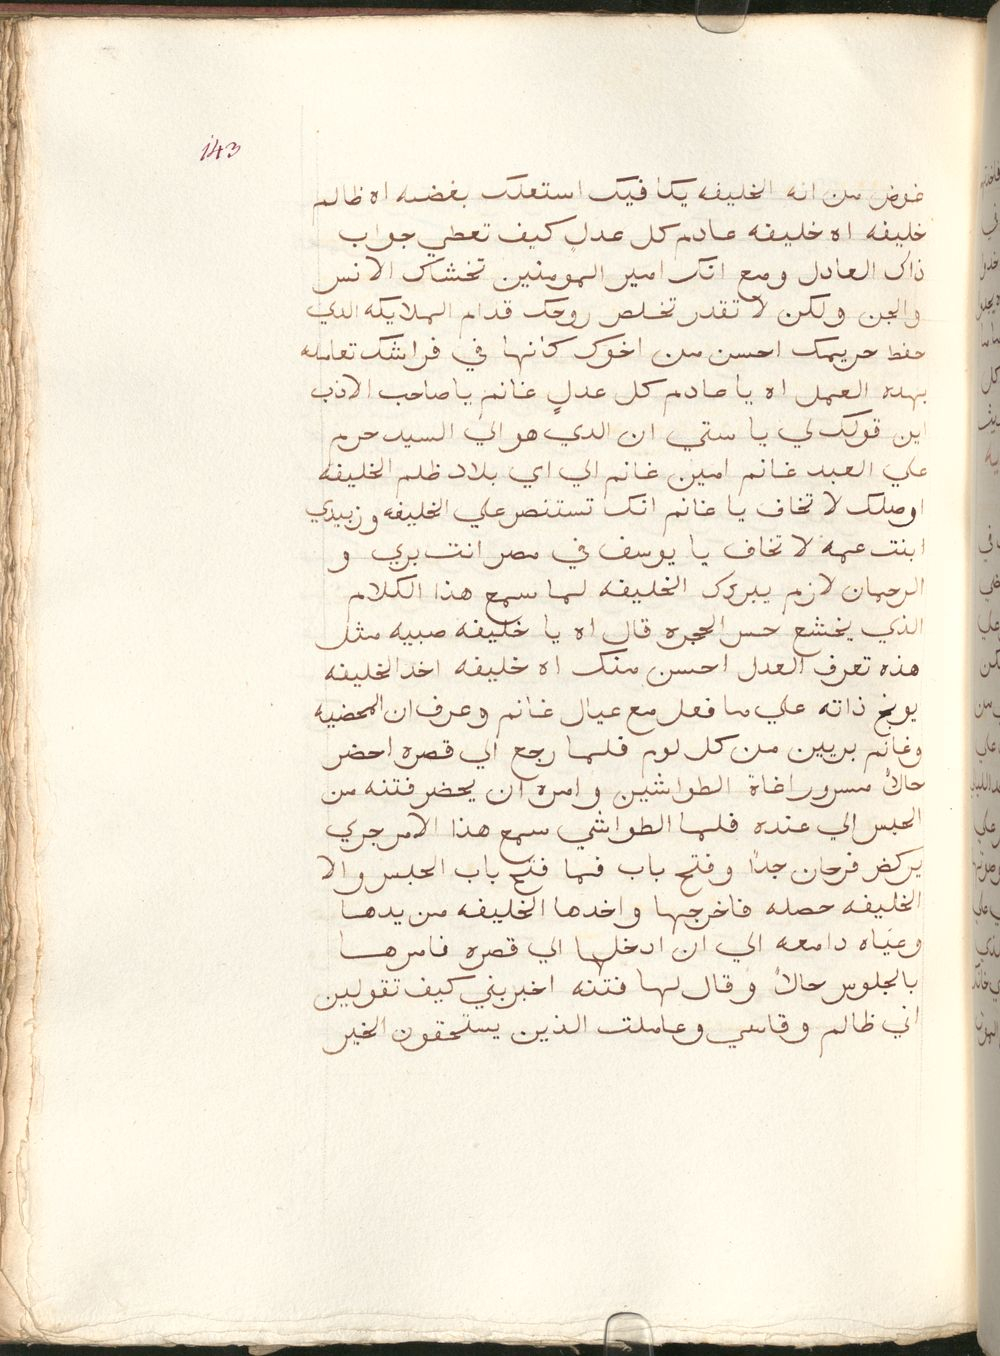 143
عوض من انه الخليفه يكافيك استعلك بغضبه اه ظالم
خليفه اه خليفه عادم كل عدلٍ كيف تعطي جواب
ذاك العادل ومع انك امير المومنين تخشاك الانس
والجن ولكن لا تقدر تخلص روحك قدام الملايكه الدي
حفظ حريمك احسن من اخوك كانها في فراشك تعامله
بهده العمل اه يا عادم كل عدلٍ غانم يا صاحب الادب
اين قولك لي يا ستي ان الدي هو الي السيد حرم
علي العبد غانم امين غانم الي اي بلاد ظلم الخليفه
اوصلك لا تخاف يا غانم انك تستنصر علي الخليفه وزبيدي
ابنت عمه لا تخاف يا يوسف في مصر انت بري و
الرحمان لازم يبررك الخليفه لما سمع هذا الكلام
الذي يخشع حس الحجره قال اه يا خليفه صبيه مثل
هذه تعرف العدل احسن منك اه خليفه اخد الخليفه
يوبخ ذاته علي ما فعل مع عيال غانم وعرف ان المحضيه
وغانم بريين من كل لوم فلما رجع الي قصره احضر
حالاً مسرور اغاة الطواشين وامره ان يحضر فتنه من
الحبس الي عنده فلما الطواشي سمع هذا الامر جري
يركض فرحان جداً وفتح باب فما فتح باب الحبس والا
الخليفه حصله فاخرجها واخدها الخليفه من يدها
وعيناه دامعه الي ان ادخلها الي قصره فامرها
بالجلوس حالاً وقال لها فتنه اخبريني كيف تقولين
اني ظالم وقاسي وعاملت الذين يستحقون الخير